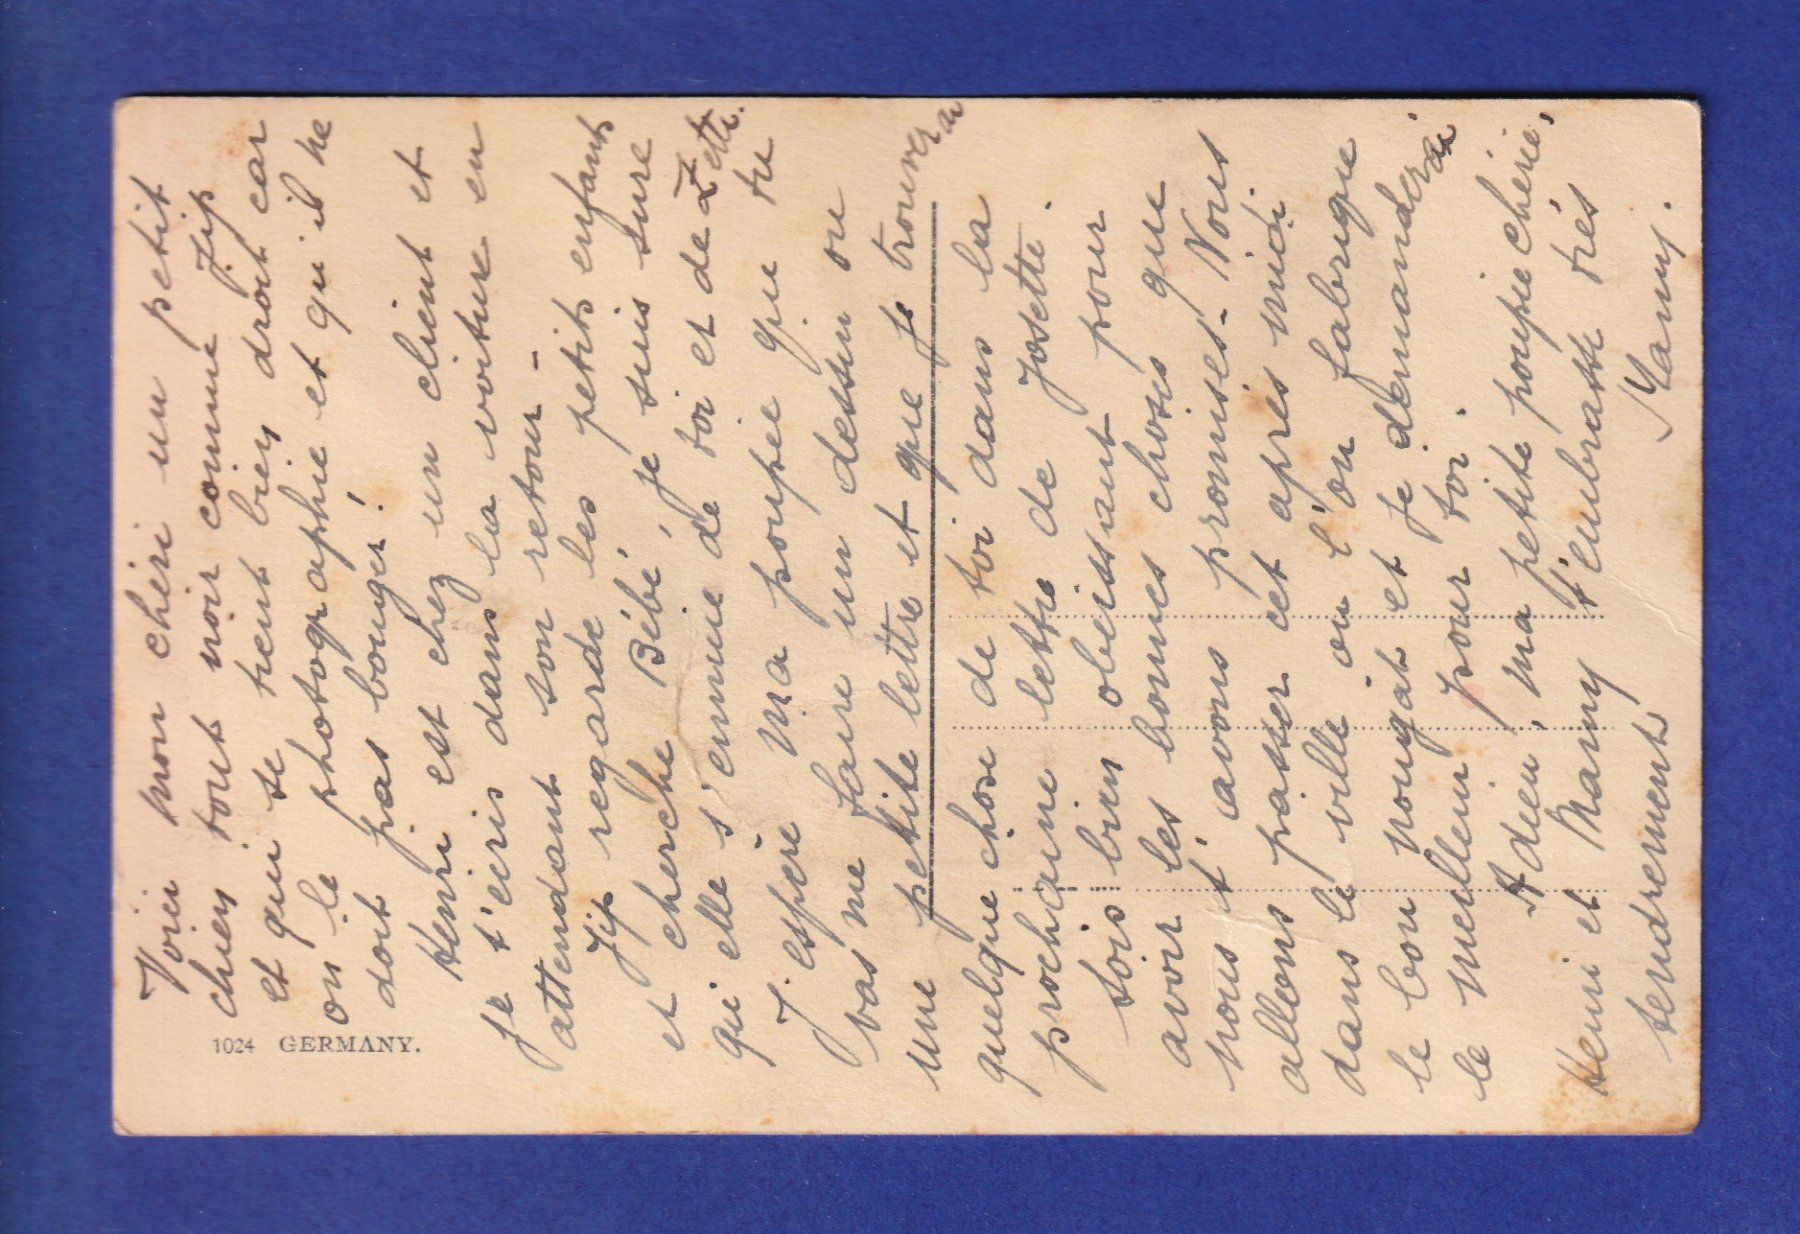 Voici mon chéri un petit
chien tout noir comme Jip
et qui se tient bien droit car
on le photographie et qu'il ne
doit pas bouger!
Henri est chez un client et
je t'ecris dans la voiture en
attendant son retour -
Jip regarde les petits enfants
et cherche Bébé, je suis sure
qu'elle s'ennuie de toi et de Zette.
J'espère ma poupée que tu
vas me faire un dessin ou
une petite lettre et que je trouverai
quelque chose de toi dans la
prochaine lettre de Josette.
Sois bien obeissant pour
avoir les bonnes choses que
nous t'avons promises - Nous
allons passer cet après midi
dans la ville où l'on fabrique
le bon nougat et je demanderai
le meilleur pour toi.
Adieu, ma petite poupée chérie,
Henri et Mamy t'embrasse très
tendrement Mamy.
1024 GERMANY.